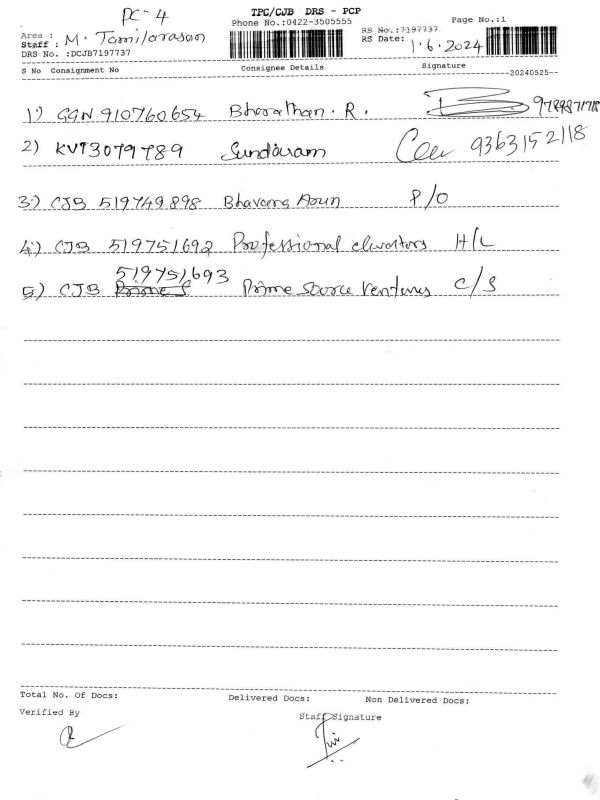 PC-4
TPC/CJB DRS - PCP
Phone No.:0422-3505555
Page No.:1
Area :
Staff : M. Tamilarasan
RS No.:7197737
RS Date: 1.6.2024
DRS No. :DCJB7197737
S No Consignment No Consignee Details Signature
20240525
1) GGN 910760654 Bharathan. R.
2) KVT3079789 Sundaram 9363152118
3) CJB 519749898 Bhavana Arun P/O
4) CJB 519751692 Professional elevators H/L
519751693
5) CJB Prime Source Ventures C/S
Total No. Of Docs: Delivered Docs: Non Delivered Docs:
Verified By Staff Signature